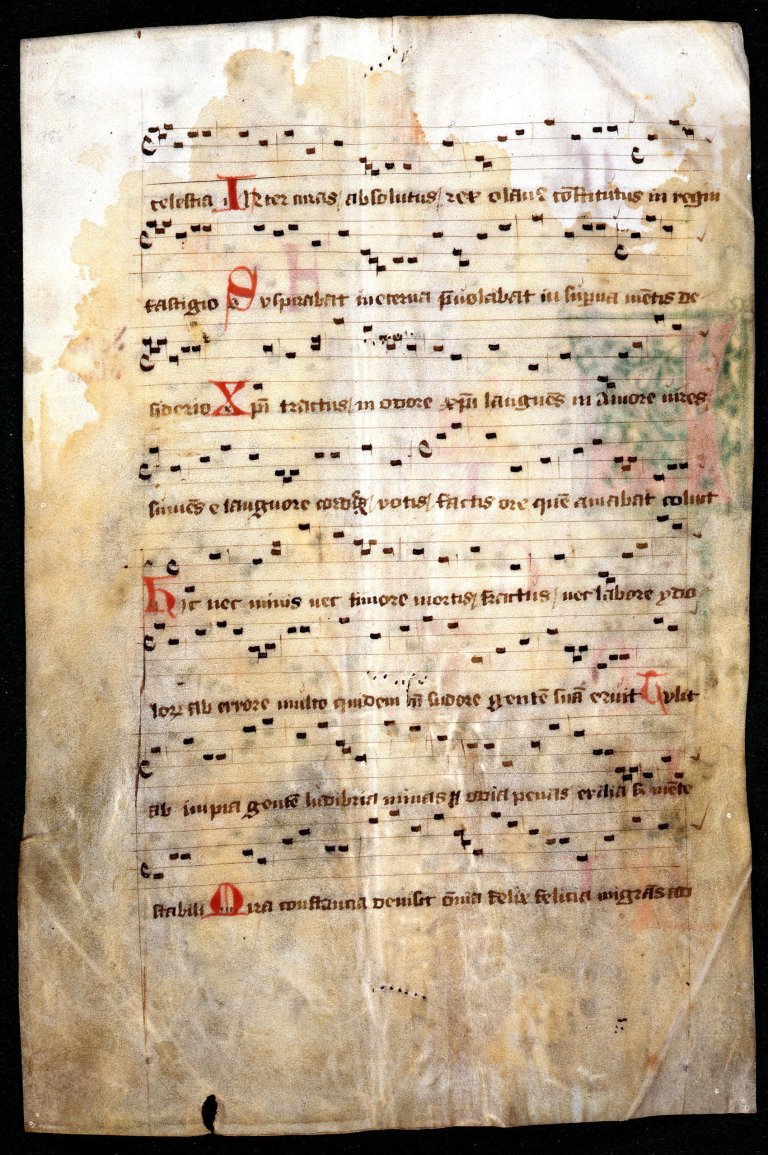 celestia Inter aucas absolutus rex olauus cōstitutus in regni
fastigio Suspirabat in eterna puolabat in supna mētis de
siderio Xpi tractus in odore xpi languēs in amore uires
sumēs e languore cordis votis factis ore quē amabat coluit
Hic nec minis nec timore mortis fractus nec labore ydo
lorꝝ ab errore multo quidem in sudore gentē suā eruit Tulit
ab impia gente ludibria minas odia penas exilia s; mēte
stabili Mira constancia deuisit ōnia felix felicia migrās ad